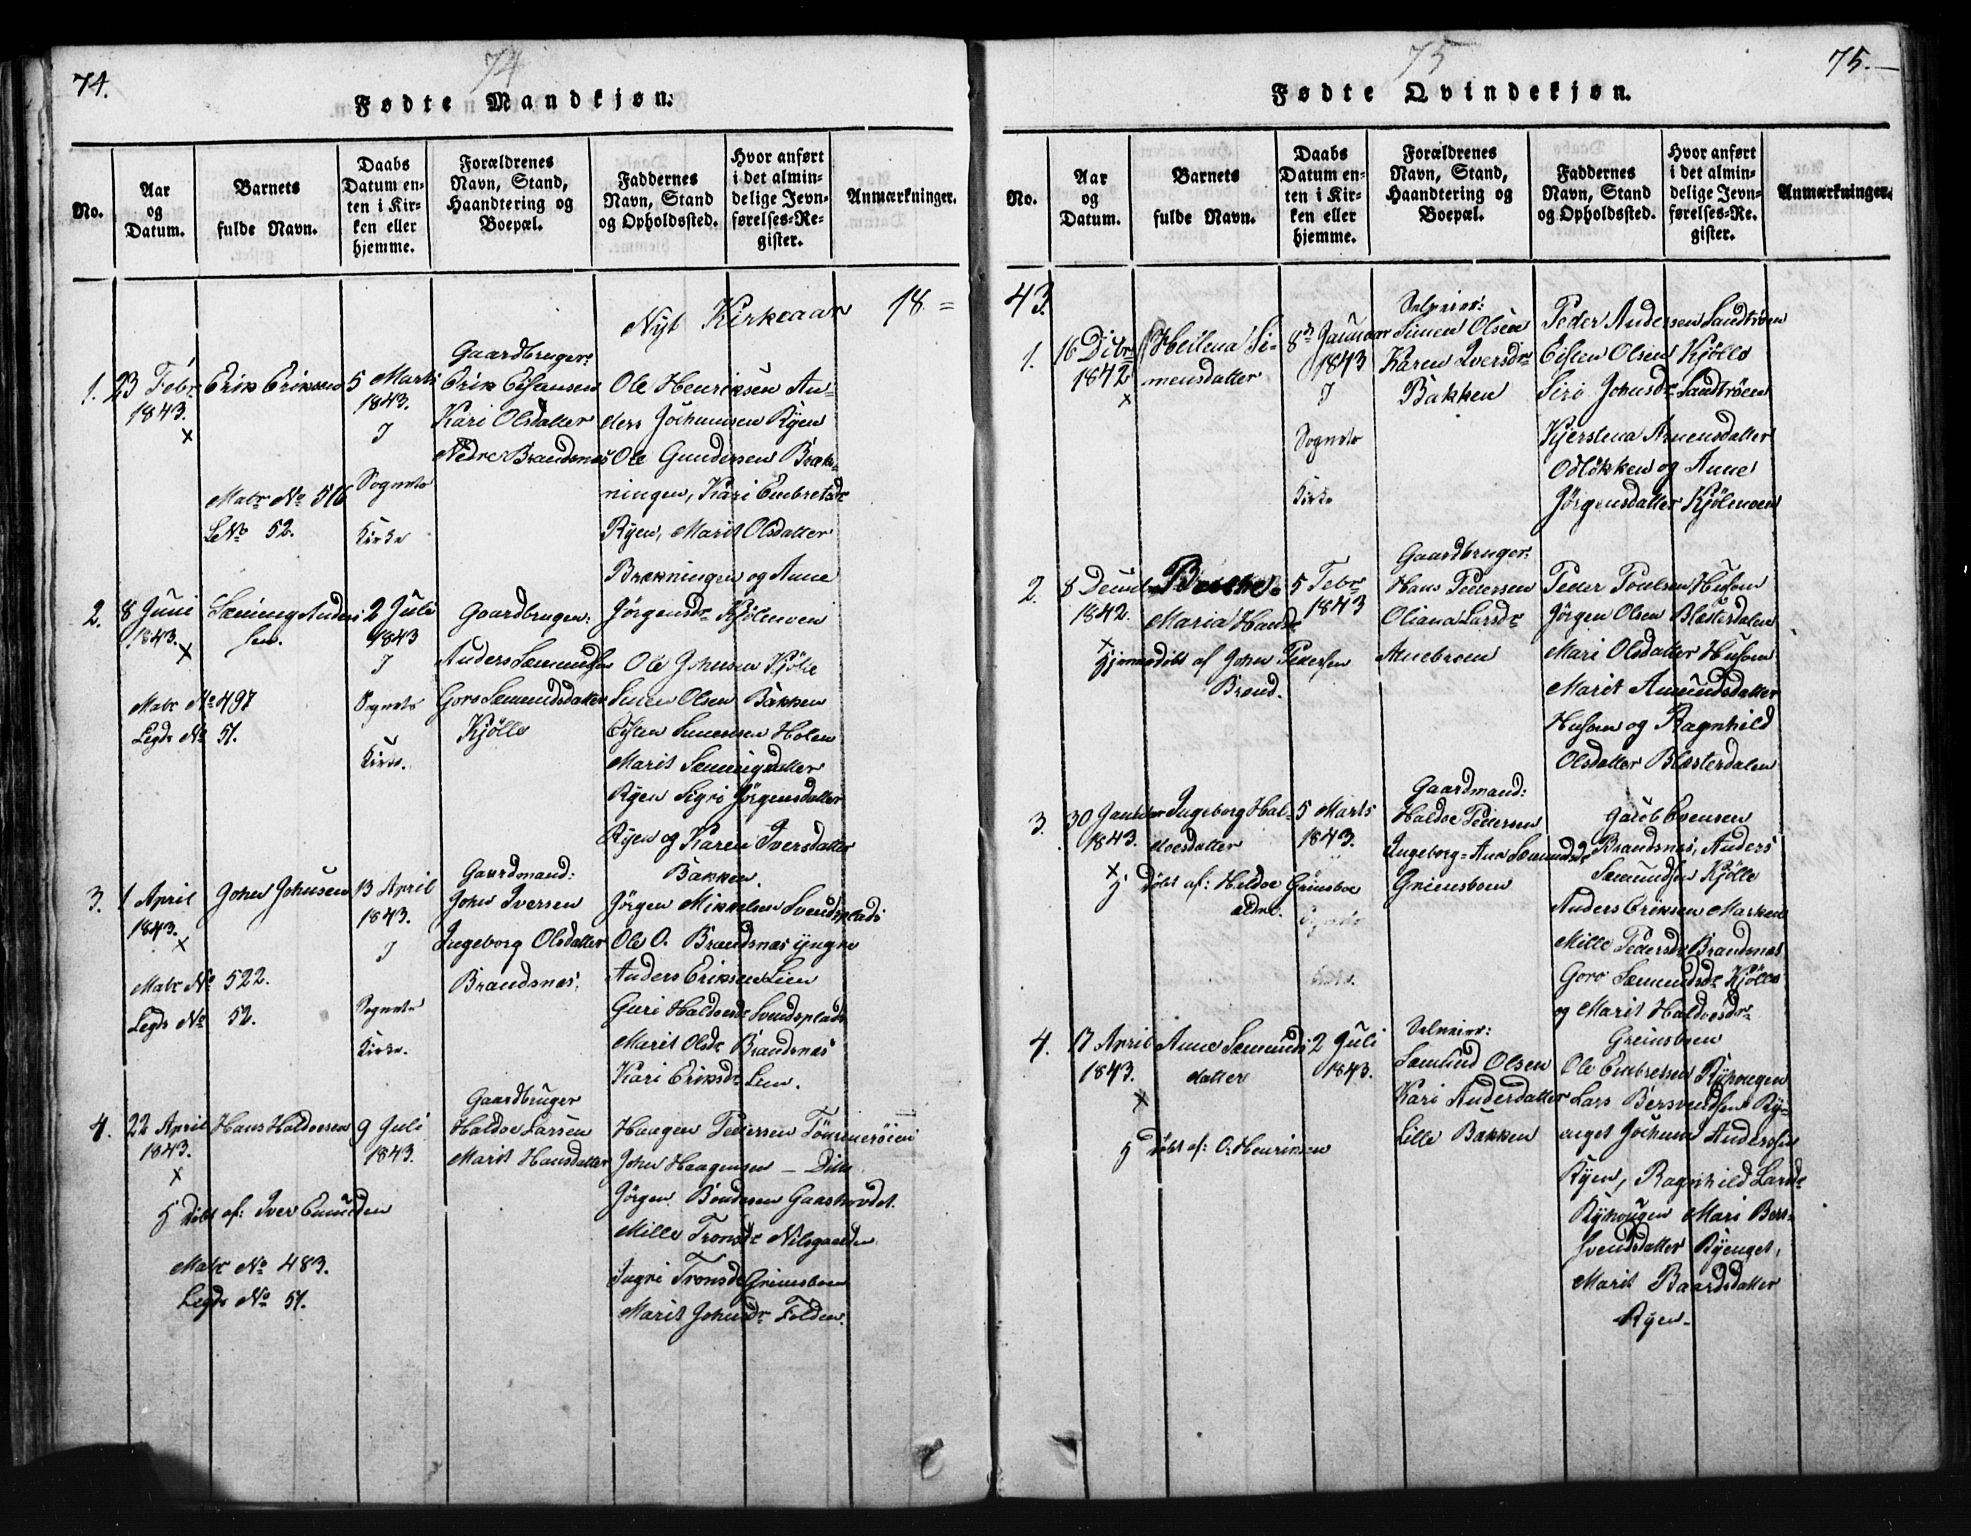 74.
74
Fødte Mandkjøn.
No.
Aar
og
Datum.
Barnets
fulde Navn.
Daabs
Datum en-
ten i Kir-
ken eller
hjemme.
Forældrenes
Navn, Stand,
Haandtering og
Boepæl.
Faddernes
Navn, Stand
og Opholdssted.
Hvor anført
i det almin-
delige Jevn-
førelses-Re-
gister.
Anmærkninger.
Nyt Kirkeaar 18 =
1.
23 Febr
1843.
x
Erik Eriksen
Matr No 516
L No 52.
5 Marts
1843.
I
Sognets
Kirke
Gaardbruger:
Erik
Kari Olsdatter
Nedre Brandsnes
Ole Henriksen An-
ders Jochumsen Ryen
Ole Gundersen Bræk-
ningen, Kari Embretsdr
Ryen, Marit Olsdatter
Brækningen og Anne
Jørgensdr Kjølmoen
2.
8 Juni
1843.
x
Sæming Anders
sen.
Matr No 497
Legds No 51.
2 Juli
1843
I
Sognets
Kirke.
Gaardbruger:
Anders Sæmundsen
Goro Sæmundsdatter
Kjölle
Ole Johnsen Kjölle
Simen Olsen Bakken
Eisten Simensen Holen
Marit Sæmingsdatter
Ryen Sigri Jörgensdatter
Ryen og Karen Iversdatter
Bakken.
3.
1 April
1843.
x
John Johnsen
Matr No 522.
Legds No 52.
13 April
1843.
I
Sognets
Kirke.
Gaardmand:
John Iversen
Ingeborg Olsdatter
Brandsnes.
Jörgen Mikkelsen Svendsplads
Ole O. Brandsnes yngre
Anders Eriksen Lien
Guri Haldosdr Svendsplads
Marit Olsdr Brandsnes
Kari Eriksdr Lien.
4.
22 April
1843.
x
Hans Haldosen
H döbt af: Iver
Matr No 483.
Legds No 51.
9 Juli
1843.
Gaardbruger
Haldoe Larsen
Marit Hansdatter
Haagen Pedersen Tömmeröien
John Haagensen — Ditto
Jörgen Bendesen Gaashovdet
Mille Tronsdr Nilsgaarden
Ingri Tronsdr Grimsboen
Marit Johnsdr Folden.
75.—
75
Fødte Qvindekjøn.
No.
Aar
og
Datum.
Barnets
fulde Navn.
Daabs
Datum en-
ten i Kir-
ken eller
hjemme.
Forældrenes
Navn, Stand,
Haandtering og
Boepæl.
Faddernes
Navn, Stand
og Opholdssted.
Hvor anført
i det almin-
delige Jevn-
førelses-Re-
gister.
Anmærkninger.
43.
1.
16 Decbr
1842
x
Si-
mensdatter
8de Januar
1843
I
Sognets
Kirke
Selveier:
Simen Olsen
Karen Iversdr
Bakken
Peder Andersen Sandtröen
Eisten Olsen Kjölle
Siri Johnsdr Sandtröen
Kjerstena Arnensdatter
Odlökken og Anne
Jörgensdatter Kjölmoen
2.
8 Decmber
1842.
x
Berthe
Maria Hansdr
Hjemmedöbt af John Pedersen
Brend.
5 Febr
1843
Gaardbruger:
Hans Pedersen
Oliana Larsdr
Amebroen
Peder Poulsen Husom
Jörgen Olsen Blæsterdalen
Mari Olsdatter Husom
Marit Amundsdatter
Husom og Ragnhild
Olsdatter Blæsterdalen
3.
30 Januar
1843.
x
Ingeborg Hal-
doesdatter
H döbt af: Haldoe Grimsboe
ældre.
5 Marts
1843.
Sognets
Kirke.
Gaardmand:
Haldoe Pedersen
Ingeborg-Ane Sæmundsdr
Grimsboen
Jacob Evensen
Brandsnes, Anders
Sæmundsen Kjölle
Anders Eriksen Marken
Mille Pedersdr Brandsnes
Goro Sæmundsdr Kjölle
og Marit Haldoesdr
Grimsboen
4.
17 April
1843.
x
Anne Sæmunds
datter
H döbt af: O. Henriksen
2 Juli
1843.
Selveier:
Sæmund Olsen
Kari Andersdatter
Lille Bakken
Ole Embretsen Ryhougen
Lars Bersvendsen Ry-
enget Jochum Andersen
Ryen, Ragnhild Larsdr
Ryhougen Mari Ber-
svendsdatter Ryenget,
Marit Baardsdatter
Ryen.